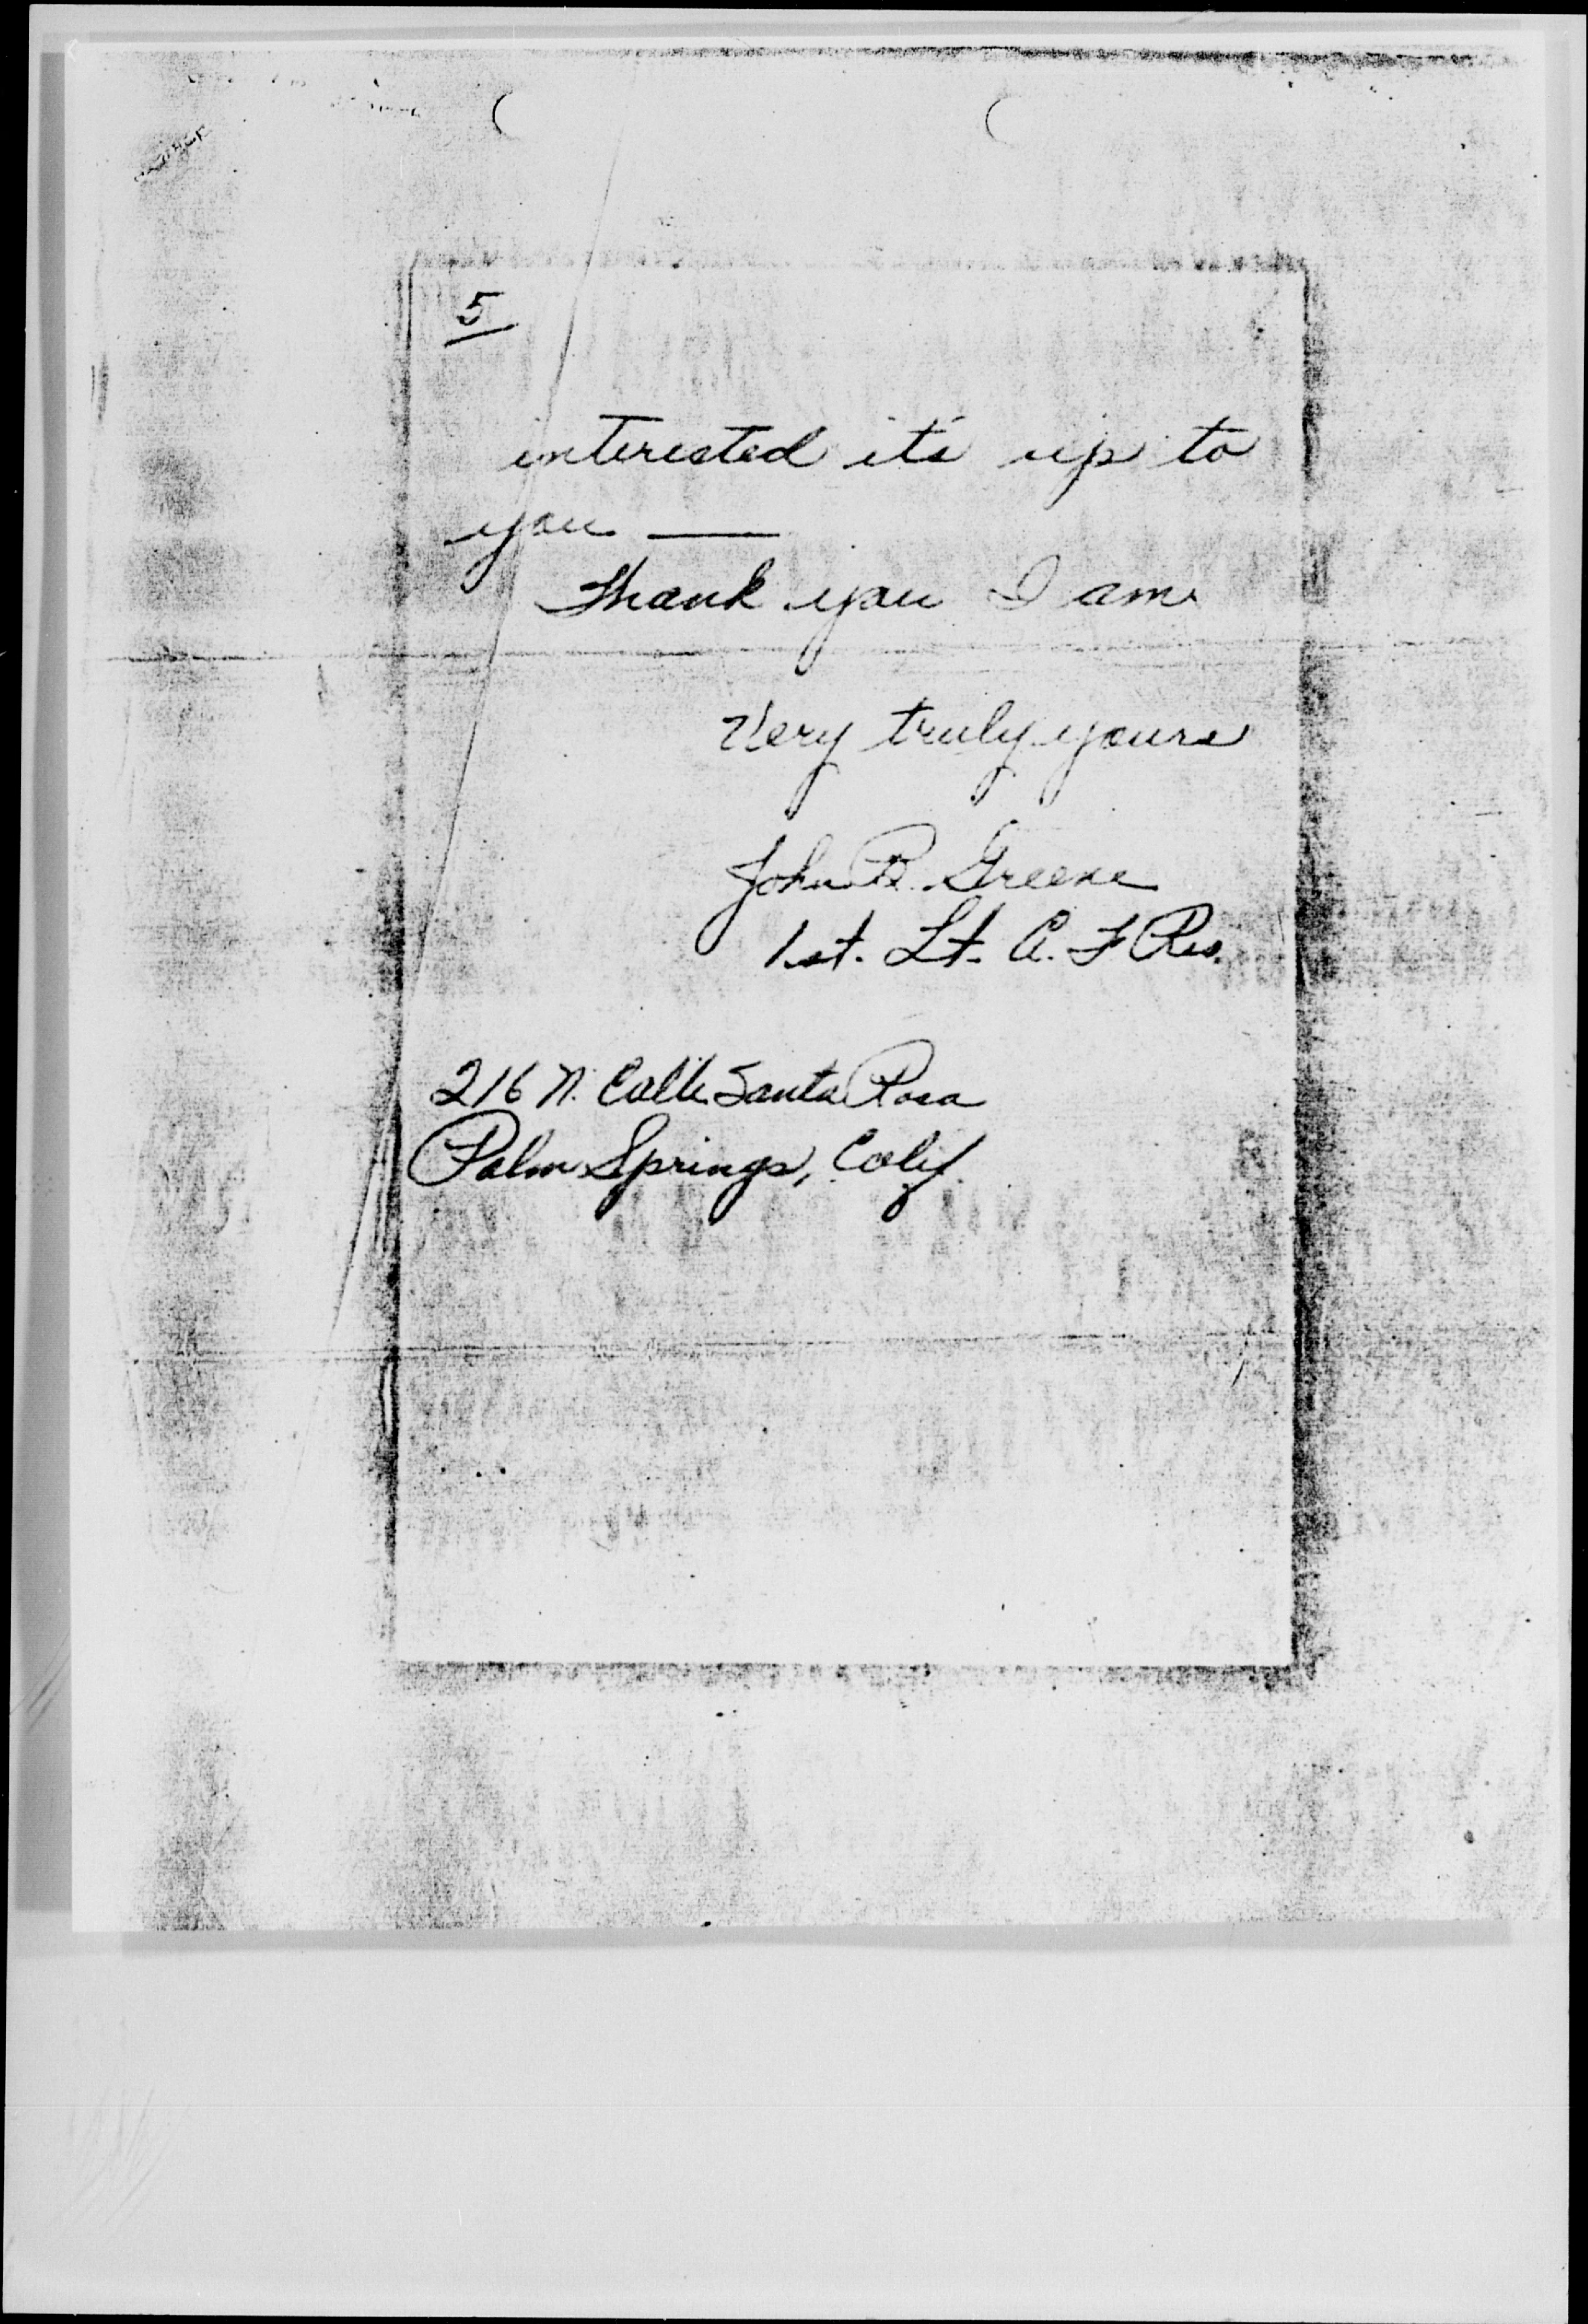 5
interested it's up to
you —
Thank you I am
Very truly yours
John R. Greene
1st. Lt. A. F Res.
216 N. Calle Santa Rosa
Palm Springs, Calif.